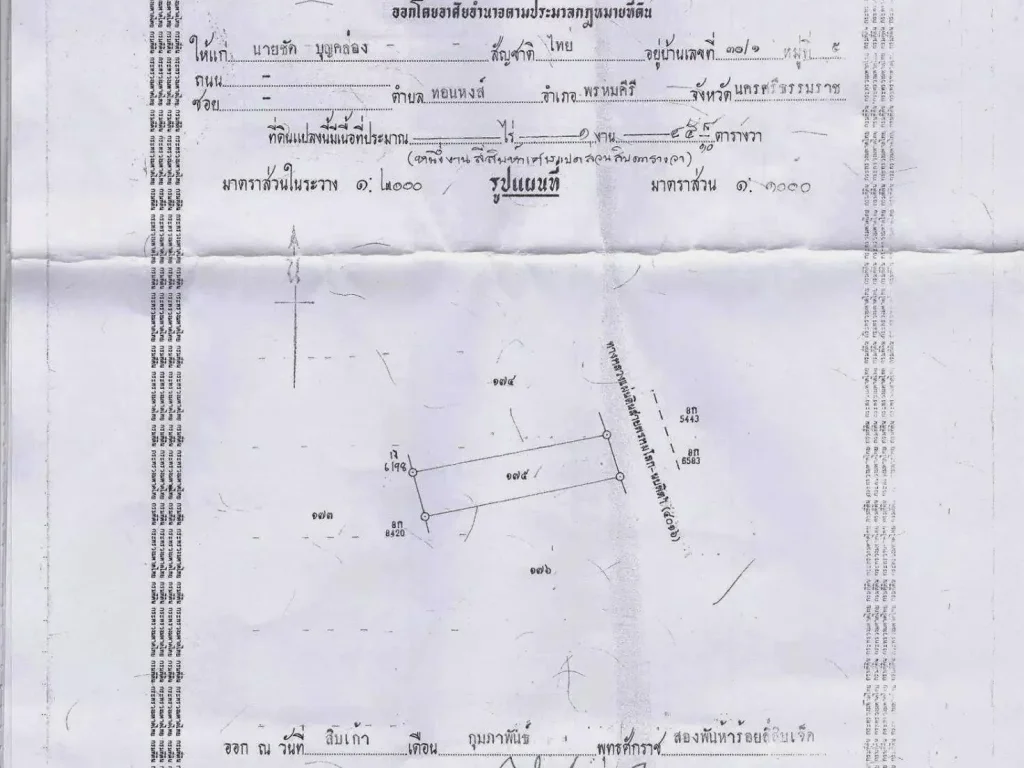 ออกโดยอาศัยอำนาจตามประมวลกฎหมายที่ดิน
ให้แก่ นายชัด บุญคล่อง - - สัญชาติ ไทย อยู่บ้านเลขที่ ๓๐/๑ หมู่ที่ ๕
ถนน - ตำบล ทอนหงส์ อำเภอ พรหมคีรี จังหวัด นครศรีธรรมราช
ซอย -
ที่ดินแปลงนี้มีเนื้อที่ประมาณ ไร่ ๑ งาน ๔๕ ๘/๑๐ ตารางวา
(หนึ่งงานสี่สิบห้าเศษแปดส่วนสิบตารางวา)
มาตราส่วนในระวาง ๑: ๔๐๐๐ รูปแผนที่ มาตราส่วน ๑: ๑๐๐๐
๑๗๔
ทางหลวงแผ่นดินสายพรหมโลก-นบพิตำ (๔๐๑๖)
อก
5443
อก
6583
๑๗๕
๑๗๓
อก
8420
๑๗๖
ออก ณ วันที่ สิบเก้า เดือน กุมภาพันธ์ พุทธศักราช สองพันห้าร้อยสี่สิบเจ็ด